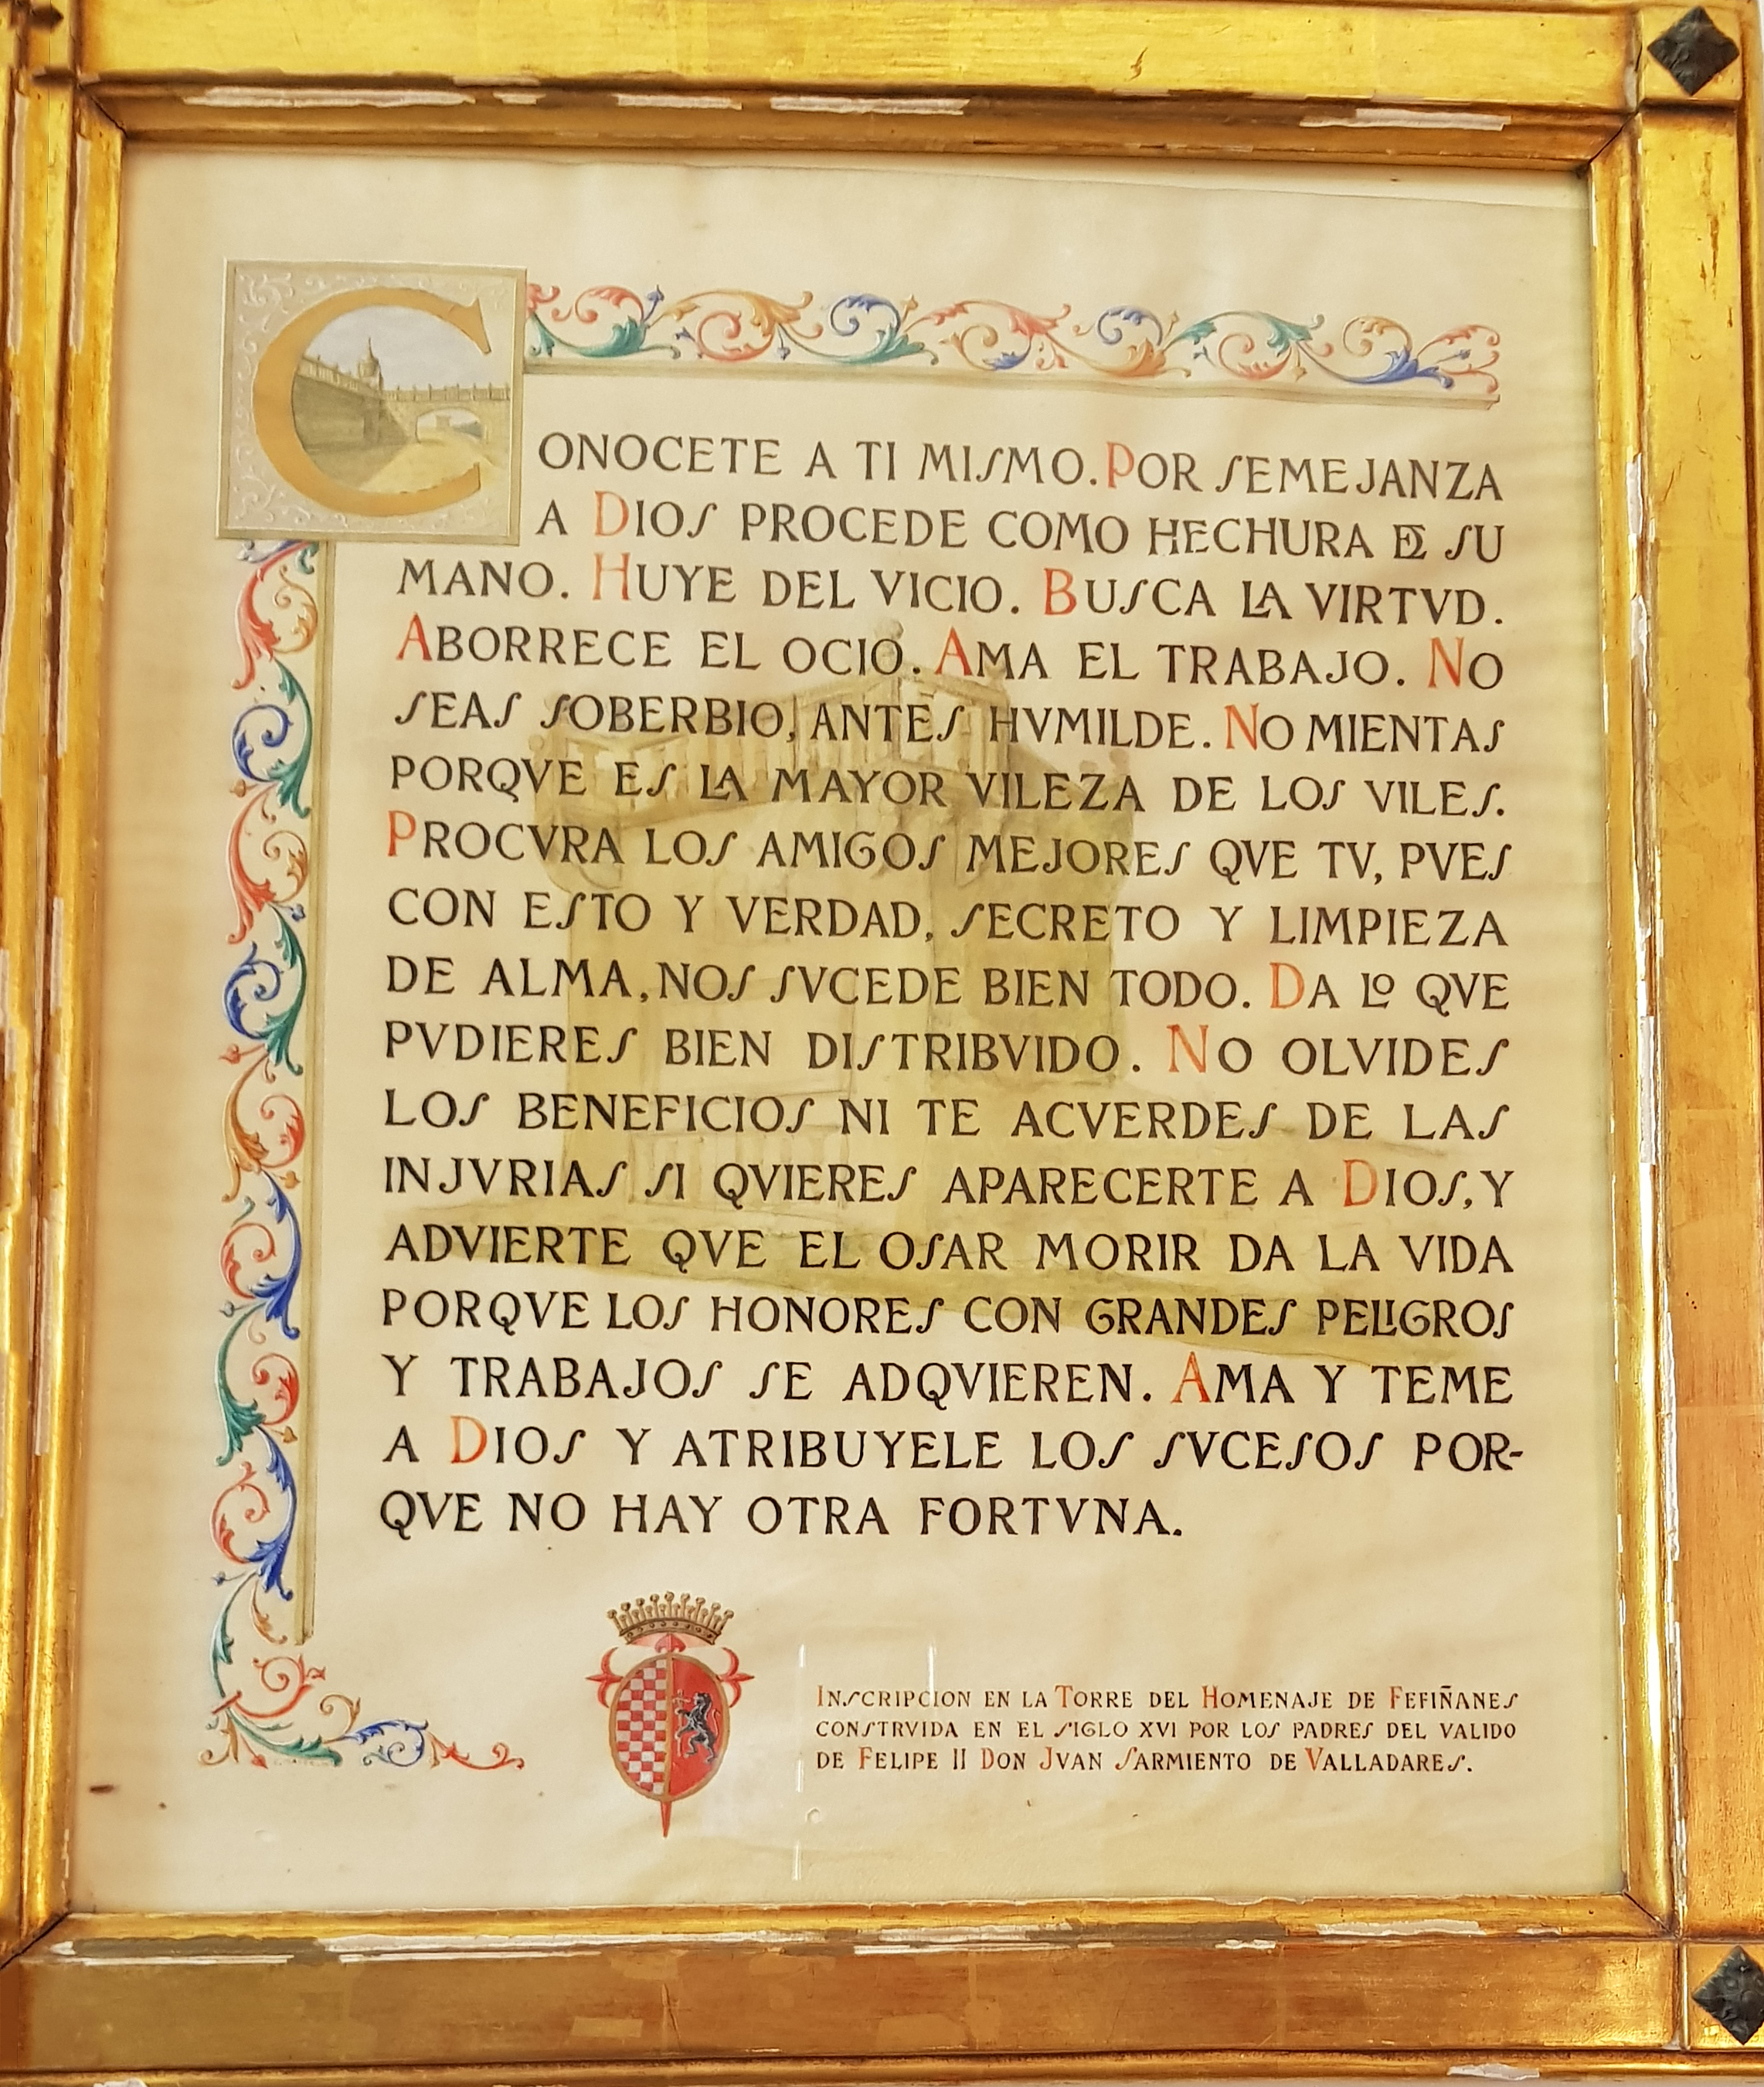 CONOCETE A TI MISMO. POR SEMEJANZA
A DIOS PROCEDE COMO HECHURA DE SU
MANO. HUYE DEL VICIO. BUSCA LA VIRTVD.
ABORRECE EL OCIO. AMA EL TRABAJO. NO
SEAS SOBERBIO, ANTES HVMILDE. NO MIENTAS
PORQVE ES LA MAYOR VILEZA DE LOS VILES.
PROCVRA LOS AMIGOS MEJORES QVE TV, PVES
CON ESTO Y VERDAD, SECRETO Y LIMPIEZA
DE ALMA, NOS SVCEDE BIEN TODO. DA LO QVE
PVDIERES BIEN DISTRIBVIDO. NO OLVIDES
LOS BENEFICIOS NI TE ACVERDES DE LAS
INJVRIAS SI QVIERES APARECERTE A DIOS, Y
ADVIERTE QVE EL OSAR MORIR DA LA VIDA
PORQVE LOS HONORES CON GRANDES PELIGROS
Y TRABAJOS SE ADQVIEREN. AMA Y TEME
A DIOS Y ATRIBUYELE LOS SVCESOS POR-
QVE NO HAY OTRA FORTVNA.
INSCRIPCION EN LA TORRE DEL HOMENAJE DE FEFIÑANES
CONSTRVIDA EN EL SIGLO XVI POR LOS PADRES DEL VALIDO
DE FELIPE II DON JVAN SARMIENTO DE VALLADARES.